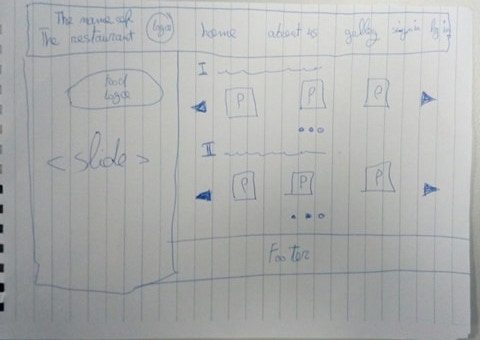 The name of
The restaurant
logo
home
about us
sign in
log in
I
food
logo
P
P
P
< slide >
II
P
P
P
Footer